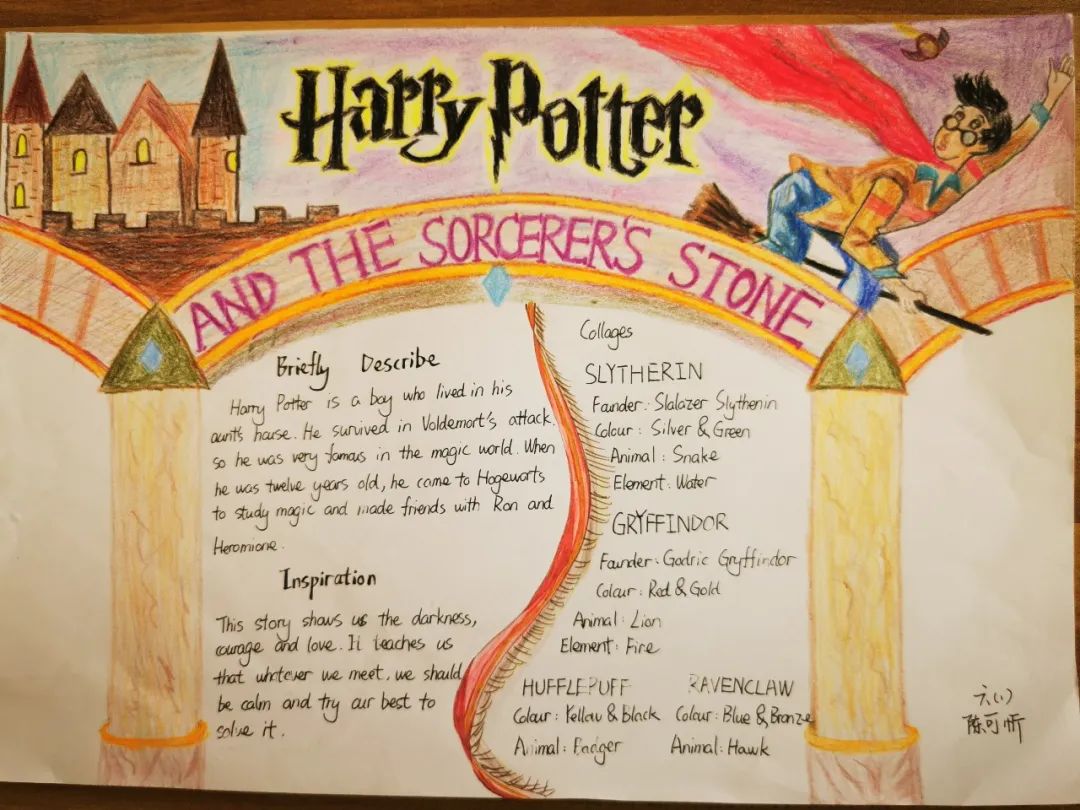 Harry Potter
AND THE SORCERER'S STONE
Briefly Describe
Harry Potter is a boy who lived in his
aunt's house. He survived in Voldemort's attack.
so he was very famous in the magic world. When
he was twelve years old, he came to Hogewarts
to study magic and made friends with Ron and
Heromione.
Inspiration
This story shows us the darkness,
courage and love. It teaches us
that whatever we meet, we should
be calm and try our best to
solve it.
Collages
SLYTHERIN
Founder: Slalazer Slythenin
Colour: Silver & Green
Animal: Snake
Element: Water
GRYFFINDOR
Founder: Godric Gryffindor
Colour: Red & Gold
Animal: Lion
Element: Fire
HUFFLEPUFF
Colour: Yellow & Black
Animal: Badger
RAVENCLAW
Colour: Blue & Bronze
Animal: Hawk
六(1)
陈可忻